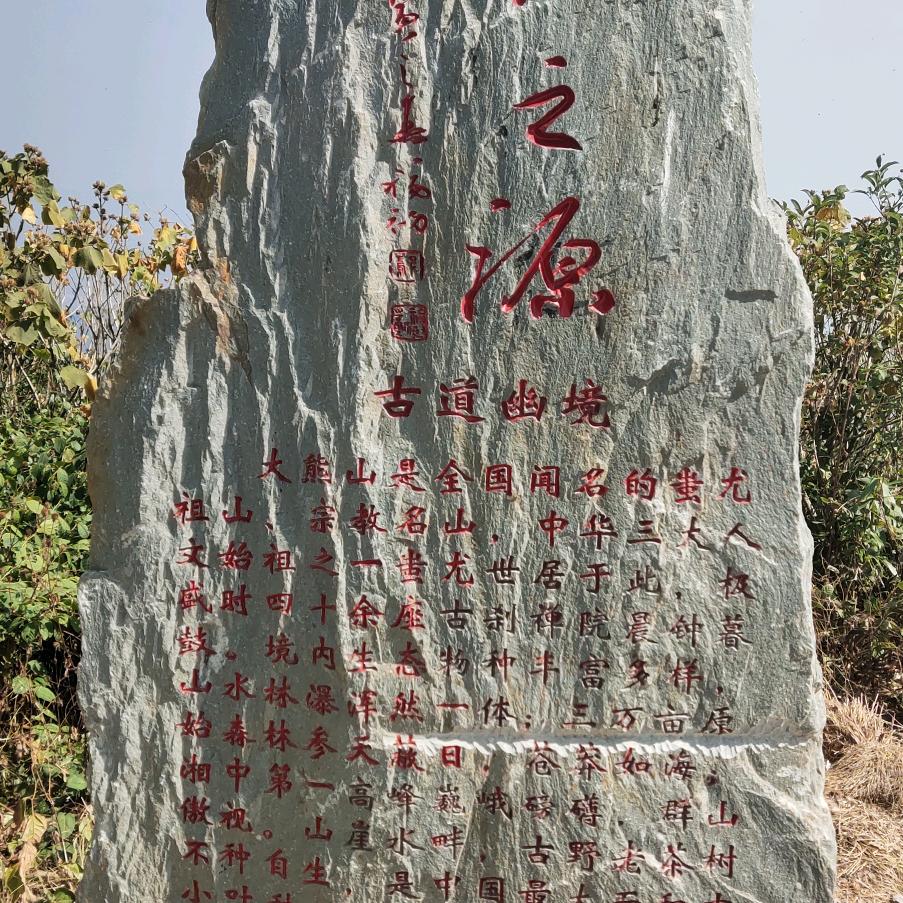 之源
古道幽境
大熊山是全国闻名的蚩尤
祖山、宗教名山,中华三大人
文始祖之一蚩尤世居于此,极
盛时四十余座古刹禅院晨钟暮
鼓。境内生态物种丰富多样,
山水林瀑浑然一体;三万亩原
始森林参天蔽日,苍莽如海,
湘中第一高峰巍峨磅礴,群山
傲视。山崖水畔,古野老茶树
不种自生,是中国最